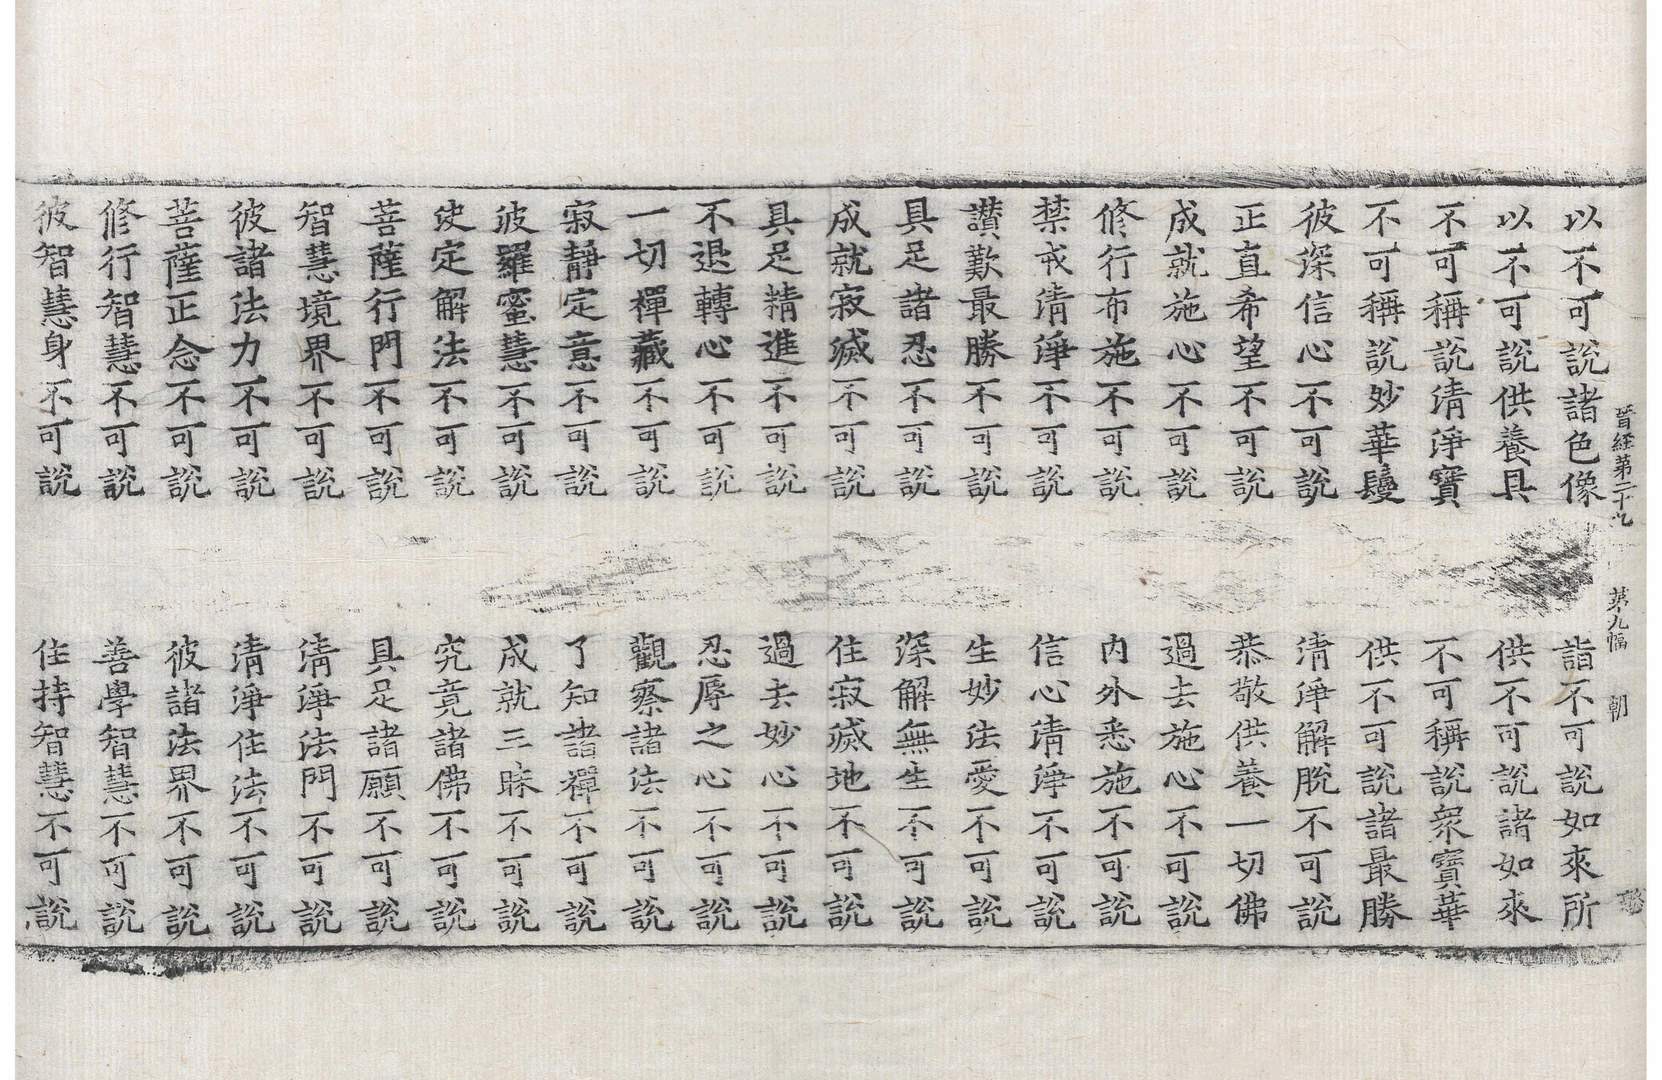 晉經第二十九　第九幅　朝
以不可說諸色像　詣不可說如來所
以不可說供養具　供不可說諸如來
不可稱說清淨寶　不可稱說衆寶華
不可稱說妙華鬘　供不可說諸最勝
彼深信心不可說　清淨解脫不可說
正直希望不可說　恭敬供養一切佛
成就施心不可說　過去施心不可說
修行布施不可說　內外悉施不可說
禁戒清淨不可說　信心清淨不可說
讚歎最勝不可說　生妙法愛不可說
具足諸忍不可說　深解無生不可說
成就寂滅不可說　住寂滅地不可說
具足精進不可說　過去妙心不可說
不退轉心不可說　忍辱之心不可說
一切禪藏不可說　觀察諸法不可說
寂靜定意不可說　了知諸禪不可說
波羅蜜慧不可說　成就三昧不可說
決定解法不可說　究竟諸佛不可說
菩薩行門不可說　具足諸願不可說
智慧境界不可說　清淨法門不可說
彼諸法力不可說　清淨住法不可說
菩薩正念不可說　彼諸法界不可說
修行智慧不可說　善學智慧不可說
彼智慧身不可說　住持智慧不可說